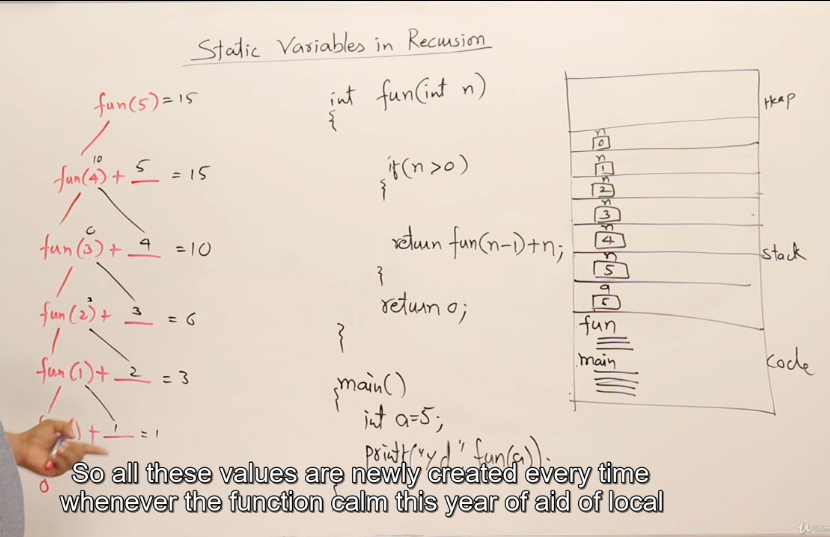 Static Variables in Recursion
fun(5) = 15
10
fun(4) + 5 = 15
6
fun(3) + 4 = 10
3
fun(2) + 3 = 6
fun(1) + 2 = 3
) + 1 = 1
0
int fun(int n)
{
if(n>0)
{
return fun(n-1)+n;
}
return 0;
}
main()
{
int a=5;
printf("%d" fun(a));
Heap
n
0
n
1
n
2
n
3
n
4
n
5
a
5
stack
fun
main
code
So all these values are newly created every time
whenever the function calm this year of aid of local